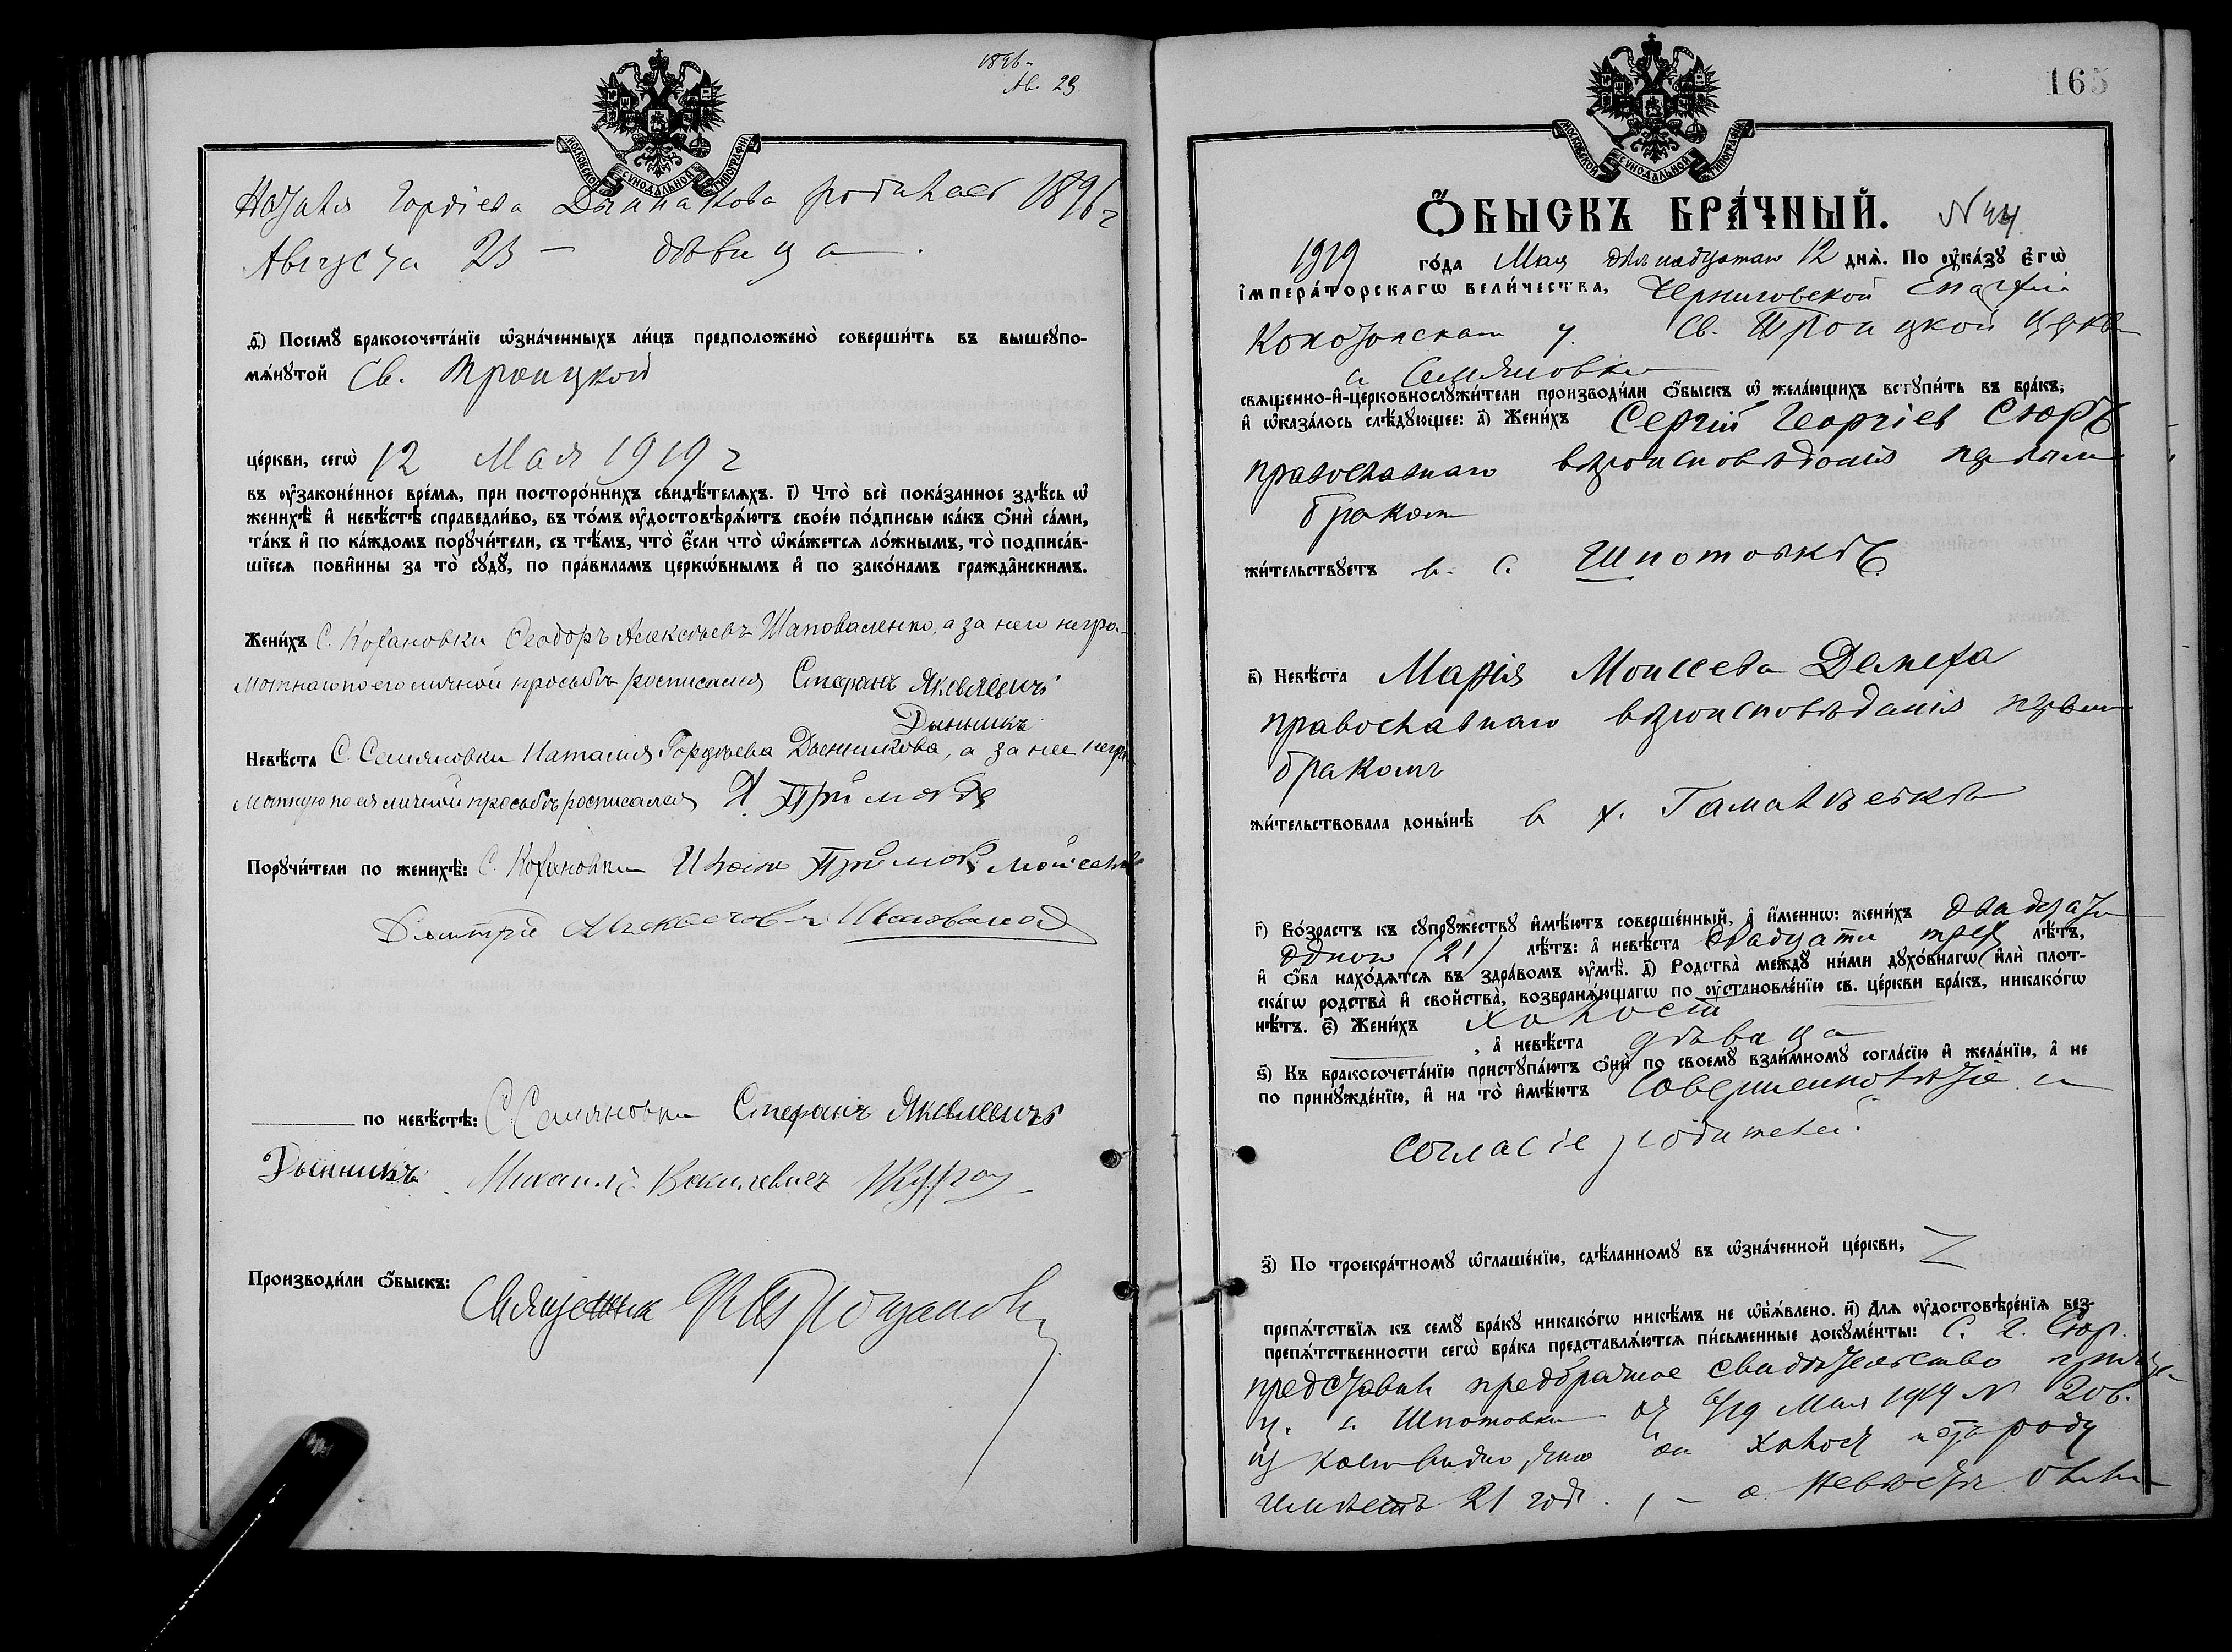 1896
Ав. 23
МОСКОВСКОЙ СѴНОДАЛЬНОЙ ТИПОГРАФІИ
Наталія Гордіева Дынникова родилась 1896 г
Августа 23 – дѣвица.
д҃) Посемꙋ бракосочета́нїе ѡ҆зна́ченныхъ ли́цъ предположено̀ соверши́ть въ вышеꙋпо-
мѧ́нꙋтой Св. Троицкой
це́ркви, сегѡ̀ 12 Мая 1919 г
въ ᲂу҆законе́нное вре́мѧ, при посторо́ннихъ свидѣ́телѧхъ. і҃) Что̀ всѐ пока́занное здѣ́сь ѡ҆
женихѣ̀ и҆ невѣ́стѣ справедли́во, въ то́мъ ᲂу҆достовѣрѧ́ютъ свое́ю по́дписью ка́къ ѻ҆нѝ са́ми,
та́къ и҆ по ка́ждомъ порꙋчи́тели, съ тѣ́мъ, что̀ є҆́сли что̀ ѡ҆ка́жетсѧ ло́жнымъ, то̀ подписа́в-
шїесѧ пови́нны за то̀ сꙋдꙋ̀, по пра́виламъ церкѡ́внымъ и҆ по зако́намъ гражда̑нскимъ.
Жени́хъ С. Кохановки Ѳеодоръ Алексѣевъ Шаповаленко, а за него негра-
мотнаго по его личной просьбѣ росписался Стефанъ Яковлевичъ
Дынникъ
Невѣ́ста С. Семяновки Наталія Гордѣева Дынникова, а за нее негра-
мотную по ея личной просьбѣ росписался
Порꙋчи́тели по женихѣ̀: С. Кохановки
Дмитрій
по невѣ́стѣ: С. Семяновки Стефанъ Яковлевичъ
Дынникъ Михаилъ
Производи́ли ѻ҆́быскъ: Священник
165
МОСКОВСКОЙ СѴНОДАЛЬНОЙ ТИПОГРАФІИ
Ѻ҆́БЫСКЪ БРА́ЧНЫЙ. N 44
1919 го́да Мая двѣнадцатаго 12 днѧ̀. По ᲂу҆ка́зꙋ є҆гѡ̀
і҆мпера́торскагѡ вели́чества, Черниговской Епархіи
Конотопскаго у. Св. Троицкой церкви
с. Семяновки
свѧще́нно-и҆-церковнослꙋжи́тели производи́ли ѻ҆́быскъ ѡ҆ жела́ющихъ встꙋпи́ть въ бра́къ,
и҆ ѡ҆каза́лось слѣ́дꙋющее: а҃) Жени́хъ Сергій Георгіев Сюръ
православнаго вѣроисповѣданія первым
браком
жи́тельствꙋетъ в с. Шпотовкѣ
в҃) Невѣ́ста Марія Моисеева Демеха
православнаго вѣроисповѣданія первым
бракомъ
жи́тельствовала доны́нѣ в х.
г҃) Во́зрастъ къ сꙋпрꙋ́жествꙋ и҆мѣ́ютъ соверше́нный, а҆ и҆́меннѡ: жени́хъ двадцати
одного (21) лѣ́тъ: а҆ невѣ́ста двадцати трех лѣ́тъ,
и҆ ѻ҆́ба нахо́дѧтсѧ въ здра́вомъ ᲂу҆мѣ̀. д҃) Родства̀ междꙋ̀ ни́ми дꙋхо́внагѡ и҆лѝ плот-
ска́гѡ родства̀ и҆ свойства̀, возбранѧ́ющагѡ по ᲂу҆становле́нїю св. це́ркви бра́къ, никако́гѡ
нѣ́тъ. є҃) Жени́хъ холост
, а҆ невѣ́ста дѣвица
ѕ҃) Къ бракосочета́нїю пристꙋпа́ютъ ѻ҆нѝ по своемꙋ̀ взаи́мномꙋ согла́сїю и҆ жела́нїю, а҆ не
по принꙋжде́нїю, и҆ на то̀ и҆мѣ́ютъ совершеннолѣтіе и
согласіе родителей.
з҃) По троекра́тномꙋ ѡ҆глаше́нїю, сдѣ́ланномꙋ въ ѡ҆зна́ченной це́ркви,
препѧ́тствїѧ къ семꙋ̀ бра́кꙋ никако́гѡ никѣ́мъ не ѡ҆б̾ѧ́влено. и҃) Длѧ ᲂу҆достовѣре́нїѧ без-
препѧ́тственности сегѡ̀ бра́ка представлѧ́ютсѧ пи́сьменные докꙋме́нты: С. Г. Сюр
представил предбрачное свидѣтельство
ц. с. Шпотовки от 6/19 Мая 1919 N 206.
из коего видно, что он холост и от роду
имѣетъ 21 год., – а невѣста